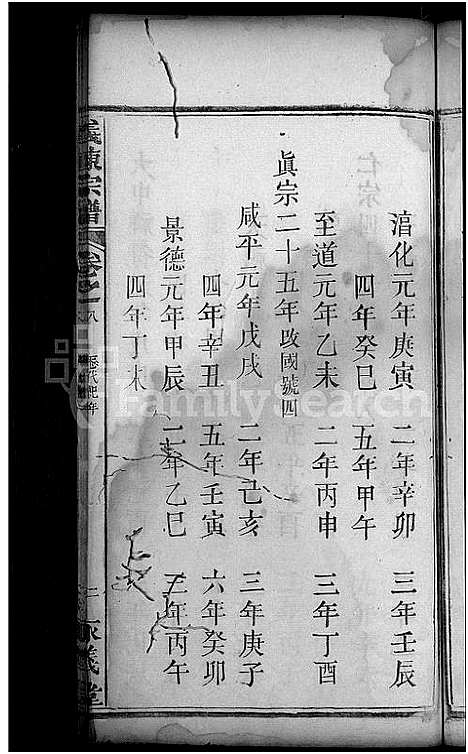 淳化元年庚寅 二年辛卯 三年壬辰
四年癸巳 五年甲午
至道元年乙未 二年丙申 三年丁酉
眞宗二十五年改國號四
咸平元年戊戌 二年己亥 三年庚子
四年辛丑 五年壬寅 六年癸卯
景德元年甲辰 二年乙巳 三年丙午
四年丁未
義陳宗譜 卷之八 歷代紀年
義堂
FamilySearch